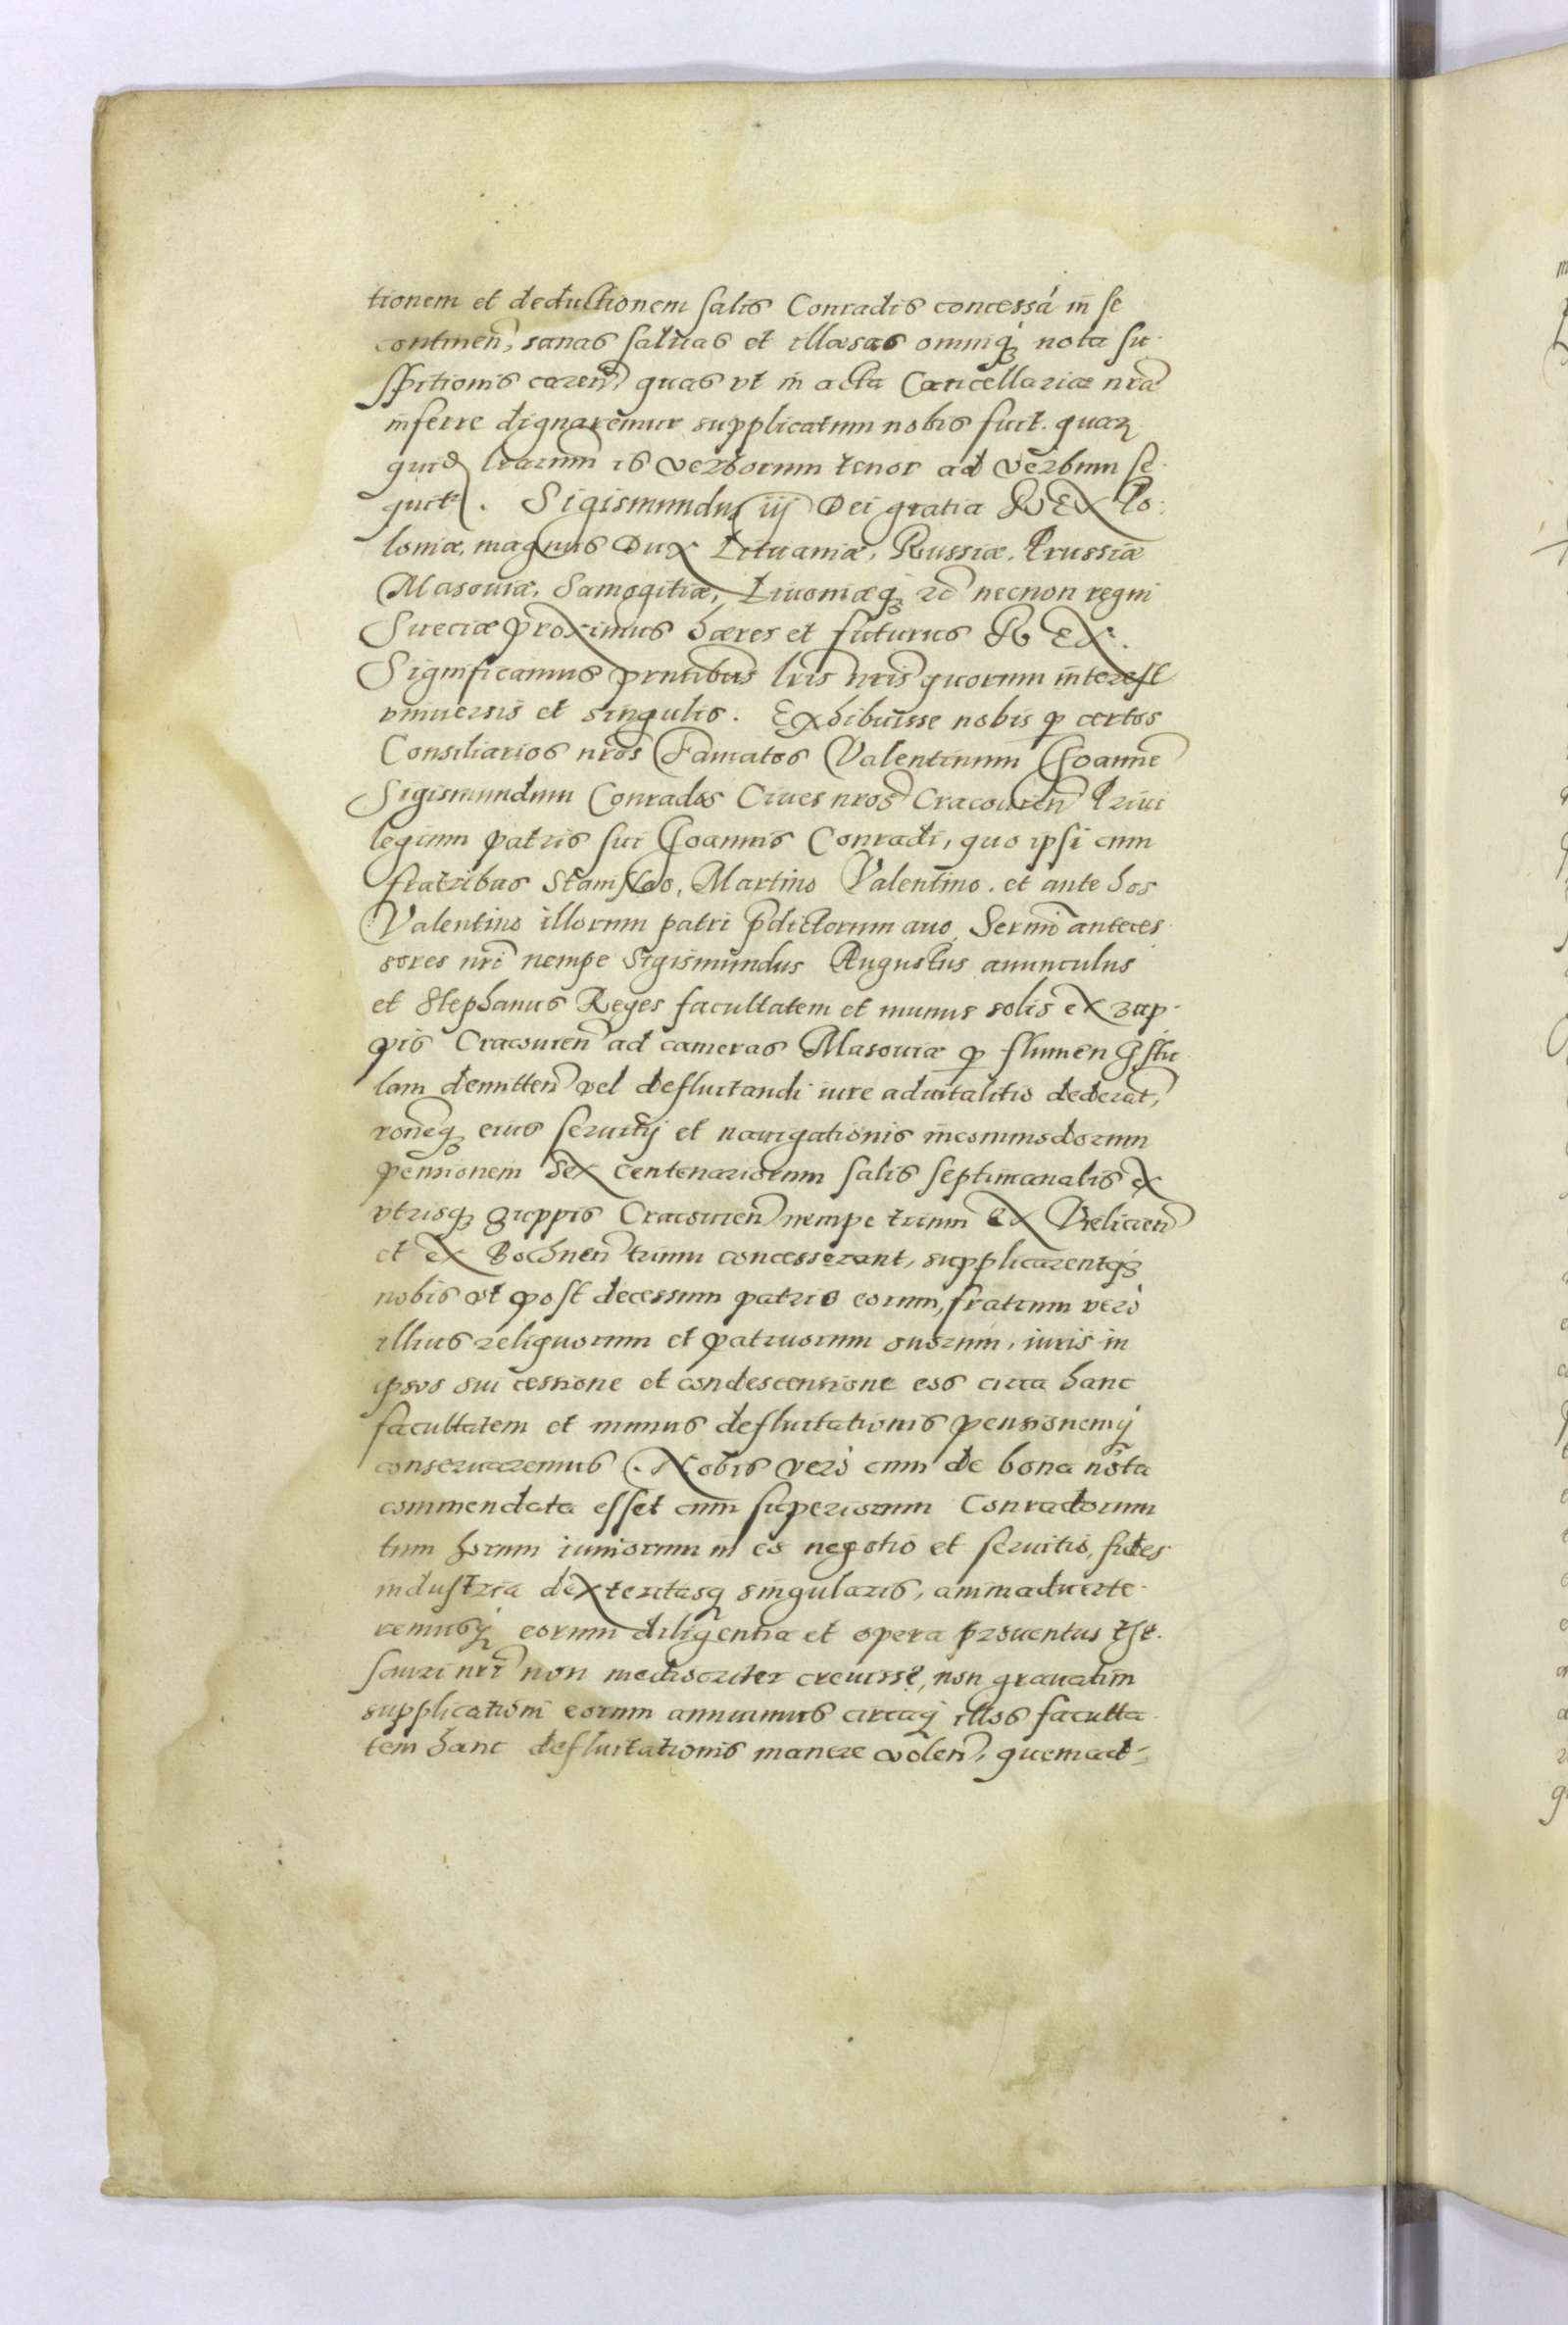 tionem et deductionem salis Conradis concessã in se
continen̄, sanas saluas et illæsas omniq́ꝫ nota su-
spitionis caren̄, quas vt in acta Cancellariæ nrã
inferre dignaremur supplicatum nobis fuit. quaꝝ
quid lrarum is verborum tenor ad verbum se-
quit̃. Sigismundus iij Dei gratia REX Po-
loniæ, magnus Dux Lituaniæ, Russiæ, Prussiæ
Masouiæ, Samogitiæ, Liuoniæqꝫ ec̃ necnon regni
Sueciæ proximus hæres et futurus REX.
Significamus pn̄tibus lris nris quorum interest
vniuersis et singulis. Exhibuisse nobis ꝑ certos
Consiliarios nros Famatos Valentinum Joannē
Sigismundum Conrados Ciues nros Cracouien̄ Priui
legium patris sui Joannis Conradi, quo ipsi cum
fratribus Stanislao, Martino Valentino, et ante hos
Valentino illorum patri p̄dictorum auo, Sermi anteces-
sores nri nempe Sigismundus Augustus auunculus
et Stephanus Reges facultatem et munus solis ex zup-
pis Cracouien̄ ad cameras Masouiæ ꝑ flumen Istu
lam demitten̄ vel defluitandi iure aduitalitio dederāt,
rōneqꝫ eius seruitij et nauigationis incommodorum
pensionem sex centenariorum salis septimanalis ex
vtrisqꝫ zuppis Cracouien̄ nempe trium ex Vielicien̄
et ex Bochnen̄ trium concesserant, supplicarentqꝫ
nobis vt post decessum patris eorum, fratrum verò
illius reliquorum et patruorum suorum, iuris in
ipsos sui cessione et condescensione eos circa hanc
facultatem et munus defluitationis pensionemq́
conseruaremus. Nobis verò cum de bona nota
commendata esset cum superiorum Conradorum
tum horum iuniorum in eo negotio et seruitio, fides
industria dexteritasq́ singularis, animaduerte-
remusq́ eorum diligentia et opera prouentus The-
sauri nri non mediocriter creuisse, non grauatim
supplicationi eorum annuimus circaq́ illos faculta-
tem hanc defluitationis manere volen̄, quemad-